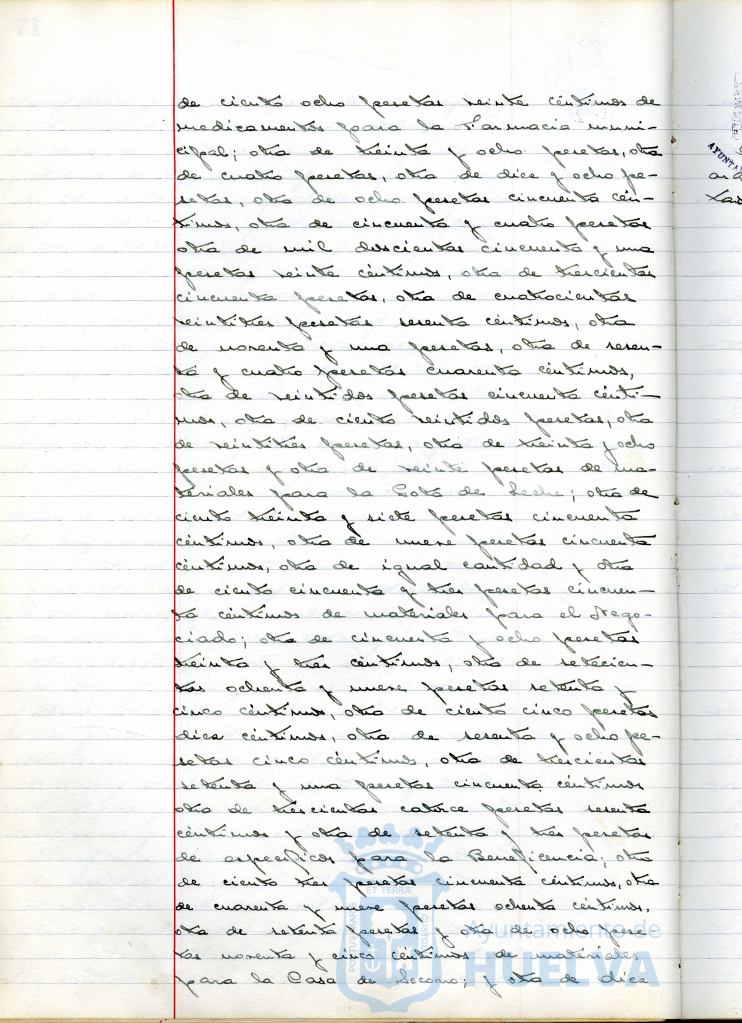 de ciento ocho pesetas veinte céntimos de
medicamentos para la Farmacia muni-
cipal; otra de treinta y ocho pesetas, otra
de cuatro pesetas, otra de diez y ocho pe-
setas, otra de ocho pesetas cincuenta cén-
timos, otra de cincuenta y cuatro pesetas
otra de mil doscientas cincuenta y una
pesetas veinte céntimos, otra de trescientas
cincuenta pesetas, otra de cuatrocientas
veintitres pesetas sesenta céntimos, otra
de noventa y una pesetas, otra de sesen-
ta y cuatro pesetas cuarenta céntimos,
otra de veintidos pesetas cincuenta cénti-
mos, otra de ciento veintidos pesetas, otra
de veintitres pesetas, otra de treinta y ocho
pesetas y otra de veinte pesetas de ma-
teriales para la Gota de Leche; otra de
ciento treinta y siete pesetas cincuenta
céntimos, otra de nueve pesetas cincuenta
céntimos, otra de igual cantidad y otra
de ciento cincuenta y tres pesetas cincuen-
ta céntimos de materiales para el Nego-
ciado; otra de cincuenta y ocho pesetas
treinta y tres céntimos, otra de setecien-
tas ochenta y nueve pesetas setenta y
cinco céntimos, otra de ciento cinco pesetas
diez céntimos, otra de sesenta y ocho pe-
setas cinco céntimos, otra de trescientas
setenta y una pesetas cincuenta céntimos
otra de trescientas catorce pesetas sesenta
céntimos y otra de setenta y tres pesetas
de específicos para la Beneficencia; otra
de ciento tres pesetas cincuenta céntimos, otra
de cuarenta y nueve pesetas ochenta céntimos,
otra de setenta pesetas y otra de ocho pese-
tas noventa y cinco céntimos de materiales
para la Casa de Socorro; y otra de diez
Ayuntamiento de
HUELVA